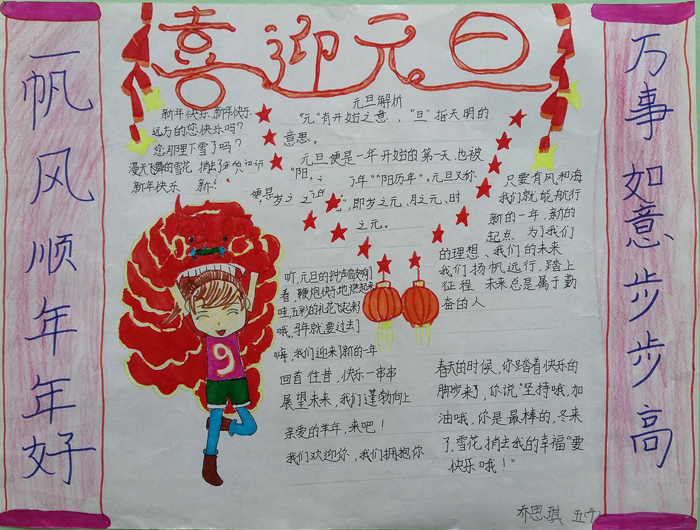 喜迎元旦
一帆风顺年年好
万事如意步步高
新年快乐、新年快乐
远方的您快乐吗?
您那里下雪了吗?
漫天飞舞的雪花
新年快乐 新
元旦解析
"元"有开始之意,"旦"指天明的
意思。
元旦便是一年开始的第一天,也被
"阳历年"。元旦又称
,即岁之元、月之元、时
之元。
只要有风和海
我们就能航行
新的一年,新的
起点 为了我们
的理想、我们的未来
我们扬帆远行,踏上
征程 未来总是属于勤
奋的人
吖,元旦的钟声敲响
看,鞭炮快乐地燃起来
哇,五彩的礼花飞起来
哦,羊年就要过去
嗨,我们迎来了新的一年
回首往昔,快乐一串串
展望未来,我们蓬勃向上
亲爱的羊年,来吧!
我们欢迎你,我们拥抱你
春天的时候,你踏着快乐的
脚步来了,你说"坚持哦,加
油哦,你是最棒的,冬来
了,雪花,捎去我的幸福"要
快乐哦!"
9
乔思琪 五